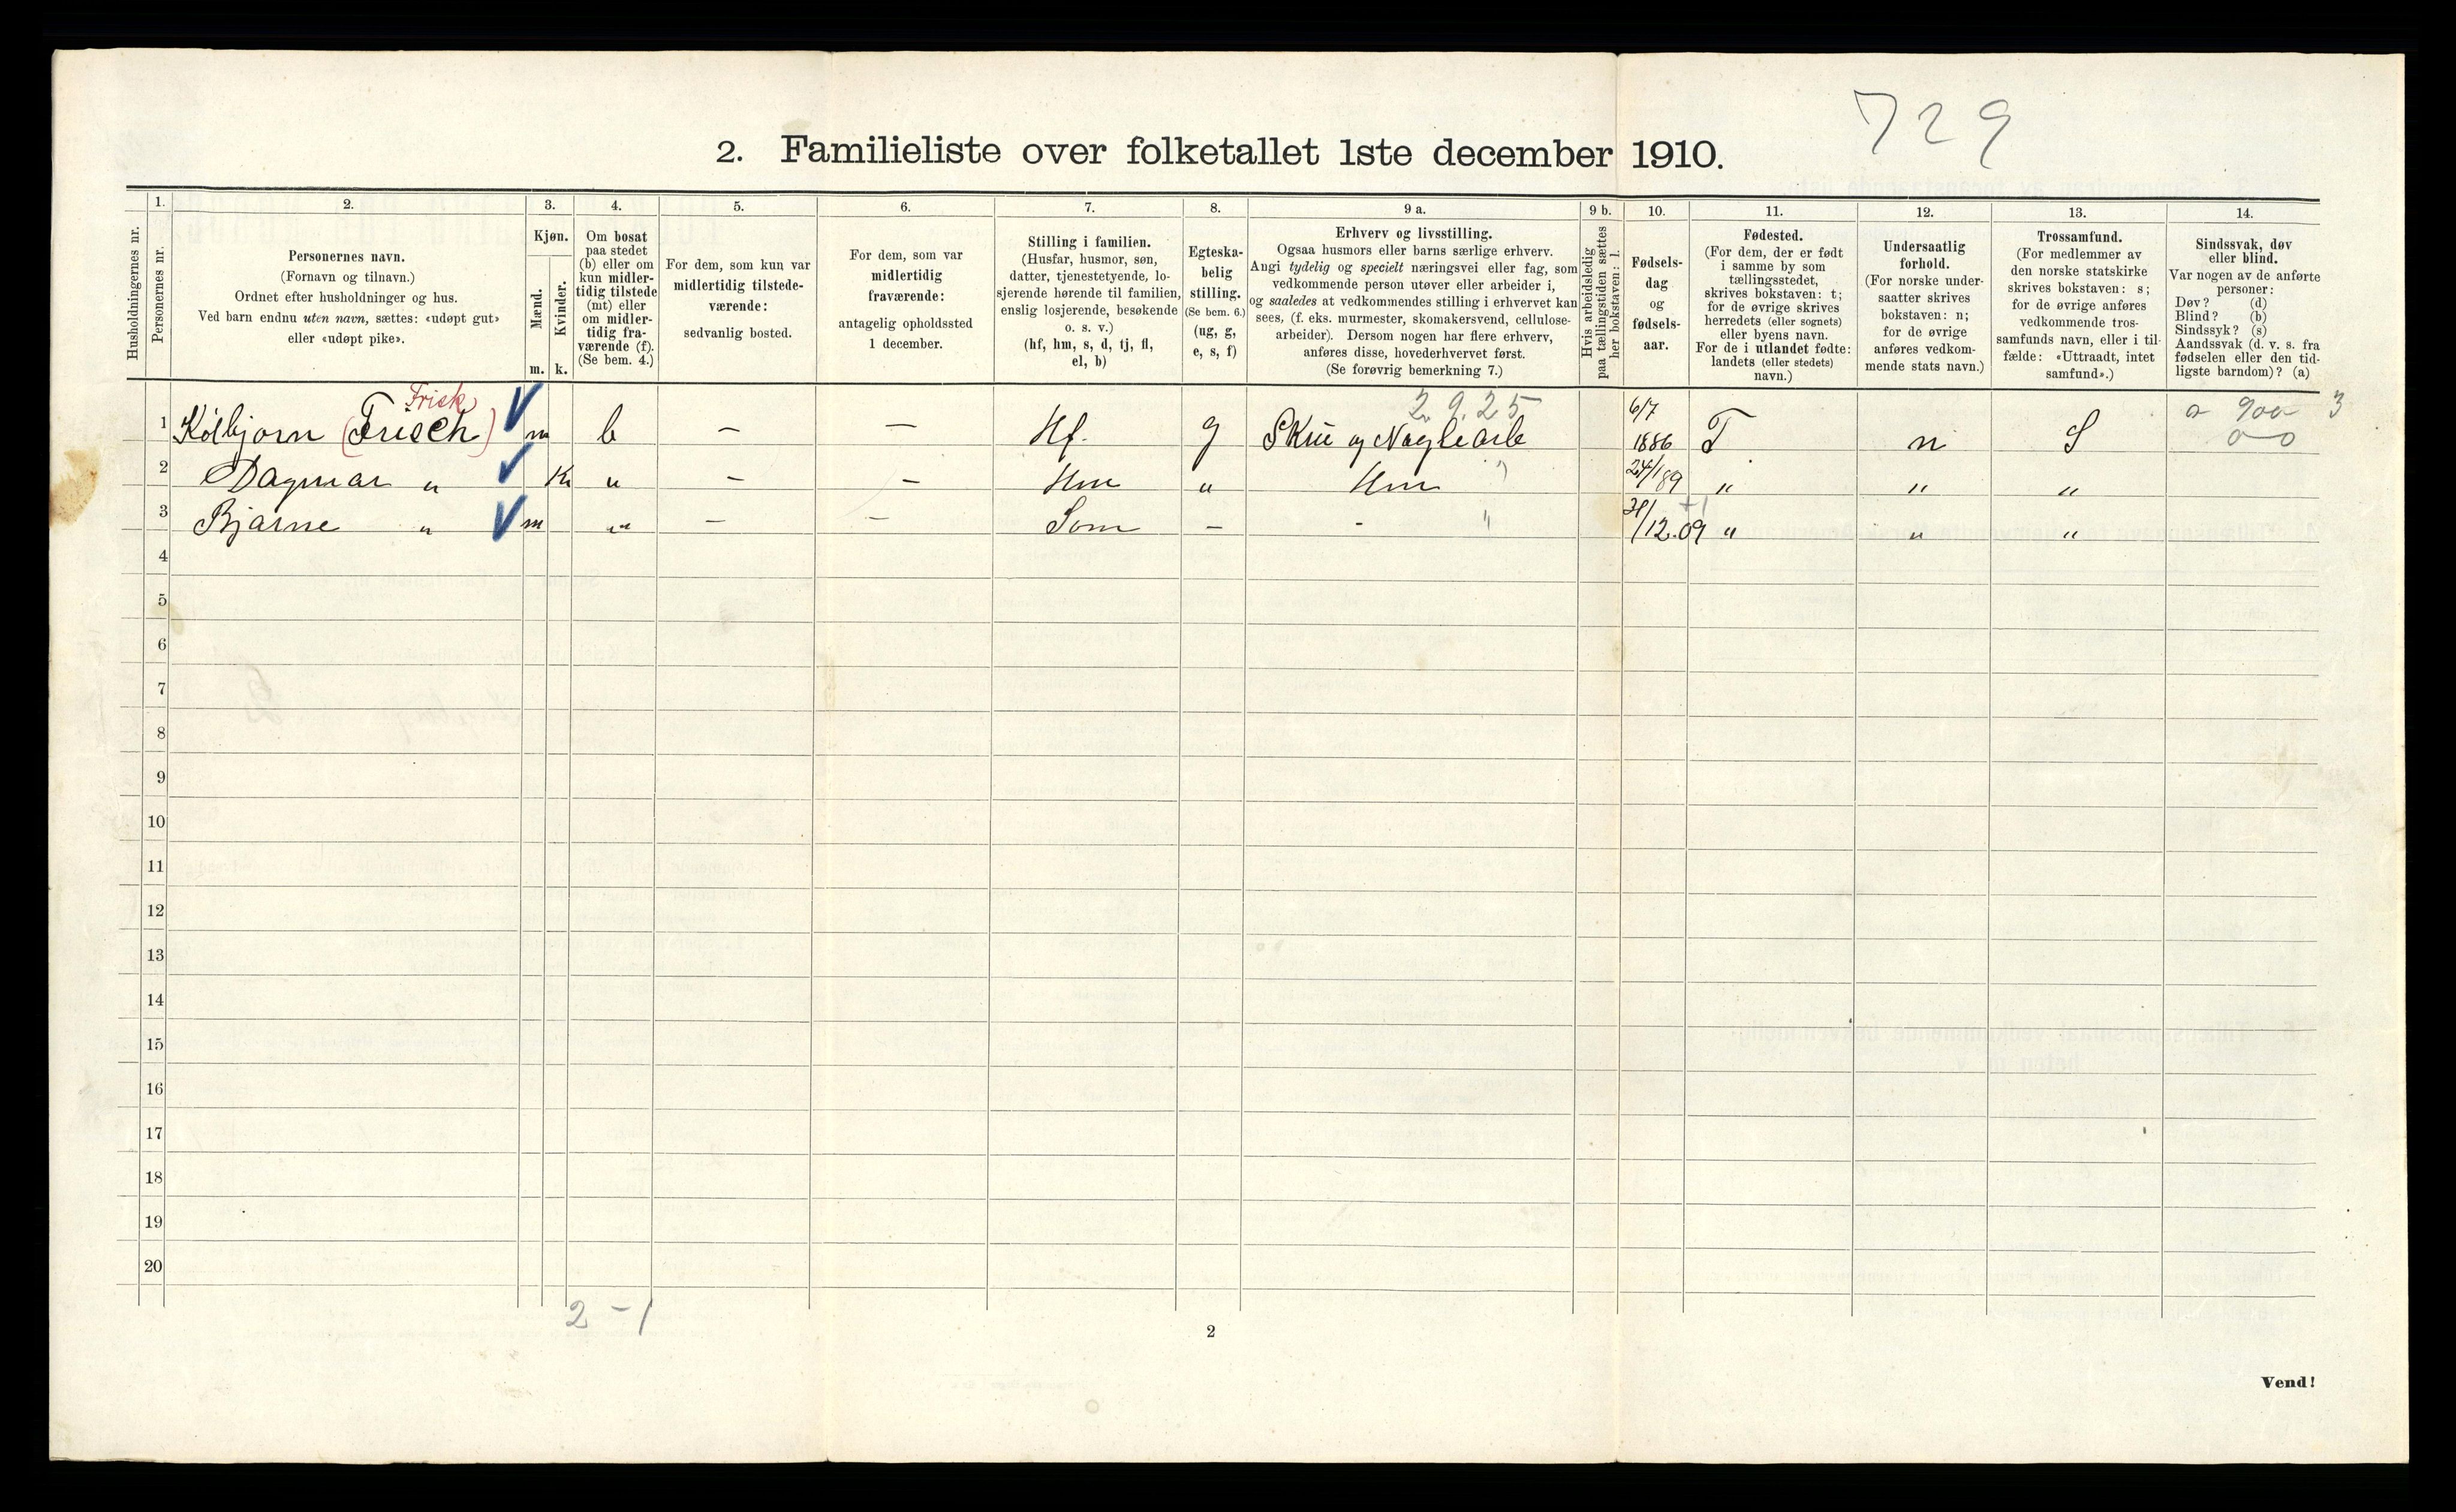 729
2. Familieliste over folketallet 1ste december 1910.
1. 2. 3. 4. 5. 6. 7. 8. 9 a. 9 b. 10. 11. 12. 13. 14.
Husholdningernes nr.
Personernes nr.
Personernes navn.
(Fornavn og tilnavn.)
Ordnet efter husholdninger og hus.
Ved barn endnu uten navn, sættes: «udøpt gut»
eller «udøpt pike».
Kjøn.
Mænd.
Kvinder.
m. k.
Om bosat
paa stedet
(b) eller om
kun midler-
tidig tilstede
(mt) eller
om midler-
tidig fra-
værende (f).
(Se bem. 4.)
For dem, som kun var
midlertidig tilstede-
værende:
sedvanlig bosted.
For dem, som var
midlertidig
fraværende:
antagelig opholdssted
1 december.
Stilling i familien.
(Husfar, husmor, søn,
datter, tjenestetyende, lo-
sjerende hørende til familien,
enslig losjerende, besøkende
o. s. v.)
(hf, hm, s, d, tj, fl,
el, b)
Egteska-
belig
stilling.
(Se bem. 6.)
(ug, g,
e, s, f)
Erhverv og livsstilling.
Ogsaa husmors eller barns særlige erhverv.
Angi tydelig og specielt næringsvei eller fag, som
vedkommende person utøver eller arbeider i,
og saaledes at vedkommendes stilling i erhvervet kan
sees, (f. eks. murmester, skomakersvend, cellulose-
arbeider). Dersom nogen har flere erhverv,
anføres disse, hovederhvervet først.
(Se forøvrig bemerkning 7.)
Hvis arbeidsledig
paa tællingstiden sættes
her bokstaven: l.
Fødsels-
dag
og
fødsels-
aar.
Fødested.
(For dem, der er født
i samme by som
tællingsstedet,
skrives bokstaven: t;
for de øvrige skrives
herredets (eller sognets)
eller byens navn.
For de i utlandet fødte:
landets (eller stedets)
navn.)
Undersaatlig
forhold.
(For norske under-
saatter skrives
bokstaven: n;
for de øvrige
anføres vedkom-
mende stats navn.)
Trossamfund.
(For medlemmer av
den norske statskirke
skrives bokstaven: s;
for de øvrige anføres
vedkommende tros-
samfunds navn, eller i til-
fælde: «Uttraadt, intet
samfund».)
Sindssvak, døv
eller blind.
Var nogen av de anførte
personer:
Døv? (d)
Blind? (b)
Sindssyk? (s)
Aandssvak (d. v. s. fra
fødselen eller den tid-
ligste barndom)? (a)
Frisk 2.9.25 3
1 Kolbjorn (Frisch) m b — — Hf. g Skrue og Naglearb 6/7 1886 T n S
2 Dagmar " k " — — Hm " Hm 24/1 89 " " "
3 Bjarne " m " — — Som — - 31/12.09 " " "
4
5
6
7
8
9
10
11
12
13
14
15
16
17
18
19
20
2 - 1
2
Vend!